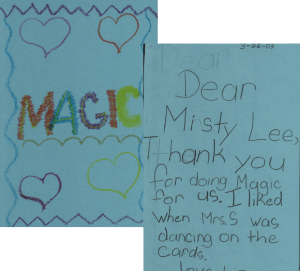 MAGIC
3-26-03
Dear
Dear
Misty Lee,
Thank you
for doing Magic
for us. I liked
when Mrs. S was
dancing on the
cards.